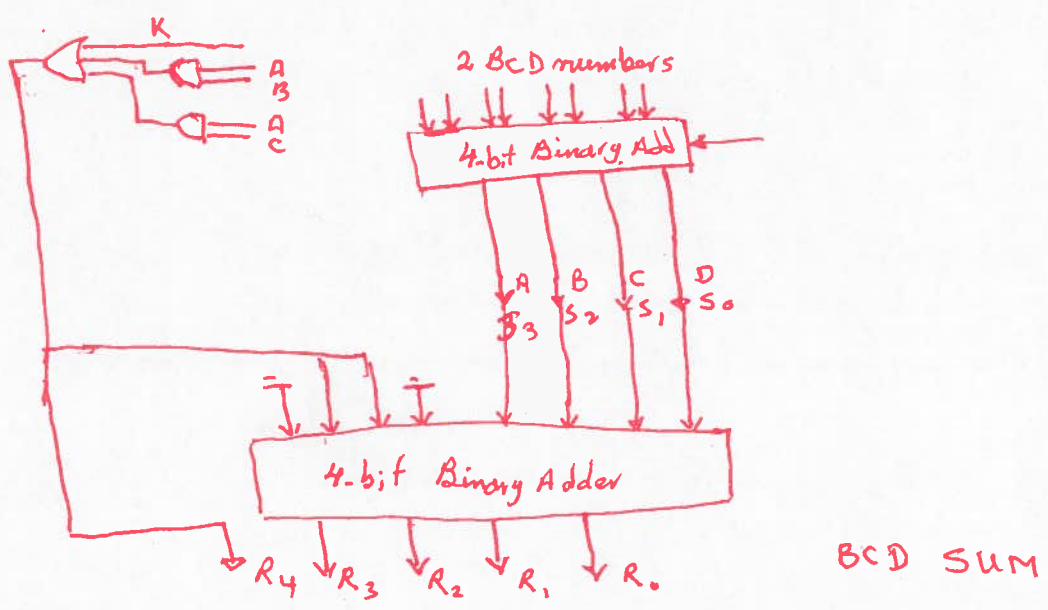 K
A
B
A
C
2 BCD numbers
4-bit Binary Add
A B C D
S3 S2 S1 S0
4-bit Binary Adder
R4 R3 R2 R1 R0
BCD SUM